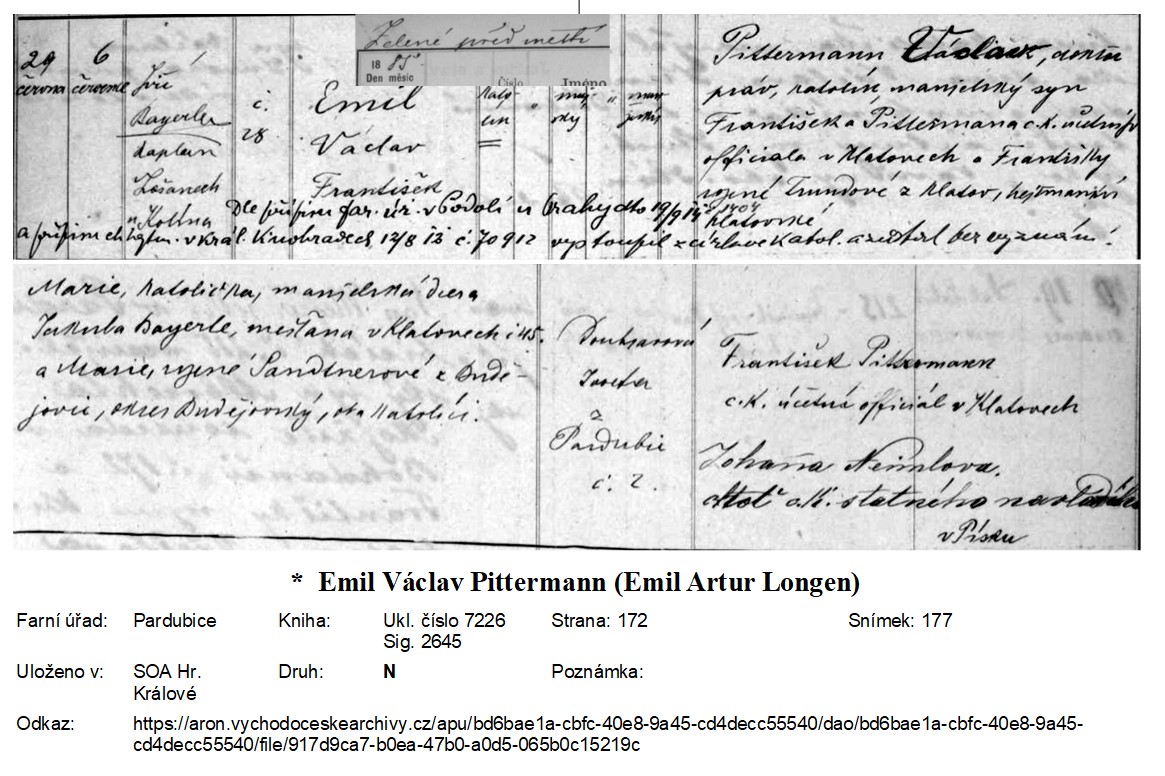 Zelené předměstí
18 85
Den měsíc
Číslo
Jméno
29
června
6
července
Jiří
Bayerle
kaplan
č.
28
Emil
Václav
František
kato-
lík
"
muž-
ský
"
man-
želský
Pittermann Václav,
práv, katolík, manželský syn
Františka Pittermanna c.k. účetního
officiala v Klatovech a Františky
rozené Trundové z Klatov, hejtmanství
Klatovské
Dle přípisu far. úř. v Podolí u Prahy dto 19/9 14
a přípisu v Král. Vinohradech 12/8 12 č. 70912 vystoupil z církve katol. a zůstal bez vyznání.
Marie, katolička, manželská dcera
Jakuba Bayerle, měšťana v Klatovech č 45.
a Marie, rozené Sandtnerové z Budě-
jovic, okres Budějovský, oba katolíci.
z
Pardubic
č. 2.
František Pittermann
c.k. účetní officiál v Klatovech
Johana
choť c.k. státního
v Písku
* Emil Václav Pittermann (Emil Artur Longen)
Farní úřad: Pardubice Kniha: Ukl. číslo 7226 Strana: 172 Snímek: 177
Sig. 2645
Uloženo v: SOA Hr. Druh: N Poznámka:
Králové
Odkaz: https://aron.vychodoceskearchivy.cz/apu/bd6bae1a-cbfc-40e8-9a45-cd4decc55540/dao/bd6bae1a-cbfc-40e8-9a45-
cd4decc55540/file/917d9ca7-b0ea-47b0-a0d5-065b0c15219c